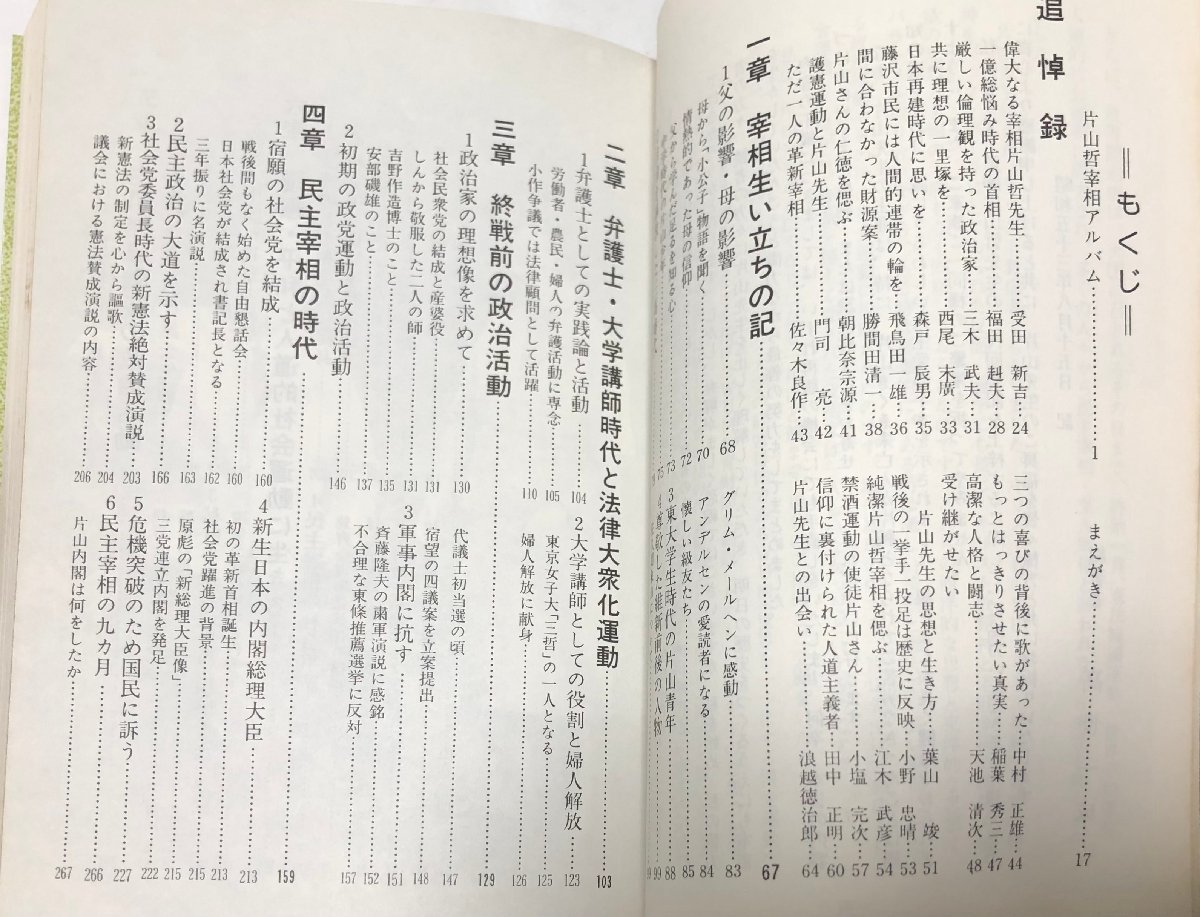 ＝もくじ＝
片山哲宰相アルバム……1
まえがき……17
追悼録
偉大なる宰相片山哲先生……受田　新吉　24
一億総悩み時代の首相……福田　赳夫　28
厳しい倫理観を持った政治家……三木　武夫　31
共に理想の一里塚を……西尾　末廣　33
日本再建時代に思いを……森戸　辰男　35
藤沢市民には人間的連帯の輪を……飛鳥田一雄　36
間に合わなかった財源案……勝間田清一　38
片山さんの仁徳を偲ぶ……朝比奈宗源　41
護憲運動と片山先生……門司　亮　42
ただ一人の革新宰相……佐々木良作　43
三つの喜びの背後に歌があった……中村　正雄　44
もっとはっきりさせたい真実……稲葉　秀三　47
高潔な人格と闘志……天池　清次　48
受け継がせたい
片山先生の思想と生き方……葉山　峻　51
戦後の一挙手一投足は歴史に反映……小野　忠晴　53
純潔片山哲宰相を偲ぶ……江木　武彦　54
禁酒運動の使徒片山さん……小塩　完次　57
信仰に裏付けられた人道主義者……田中　正明　60
片山先生との出会い……浪越徳治郎　64
一章　宰相生い立ちの記……67
1父の影響・母の影響……68
母から「小公子」物語を聞く……70
情熱的であった母の信仰……72
父から学んだ足るを知る心……73
75
グリム・メールヘンに感動……83
アンデルセンの愛読者になる……84
懐しい級友たち……85
3東大学生時代の片山青年……88
尊敬した維新前後の人物……99
二章　弁護士・大学講師時代と法律大衆化運動……103
1弁護士としての実践論と活動……104
労働者・農民・婦人の弁護活動に専念……105
小作争議では法律顧問として活躍……110
2大学講師としての役割と婦人解放……123
東京女子大「三哲」の一人となる……125
婦人解放に献身……126
三章　終戦前の政治活動……129
1政治家の理想像を求めて……130
社会民衆党の結成と産婆役……131
しんから敬服した二人の師……131
吉野作造博士のこと……135
安部磯雄のこと……137
2初期の政党運動と政治活動……146
代議士初当選の頃……147
宿望の四議案を立案提出……148
3軍事内閣に抗す……151
斉藤隆夫の粛軍演説に感銘……152
不合理な東條推薦選挙に反対……157
四章　民主宰相の時代……159
1宿願の社会党を結成……160
戦後間もなく始めた自由懇話会……160
日本社会党が結成され書記長となる……162
三年振りに名演説……163
2民主政治の大道を示す……166
3社会党委員長時代の新憲法絶対賛成演説……203
新憲法の制定を心から謳歌……204
議会における憲法賛成演説の内容……206
4新生日本の内閣総理大臣……213
初の革新首相誕生……213
社会党躍進の背景……215
原彪の「新総理大臣像」……215
三党連立内閣を発足……222
5危機突破のため国民に訴う……227
6民主宰相の九カ月……266
片山内閣は何をしたか……267